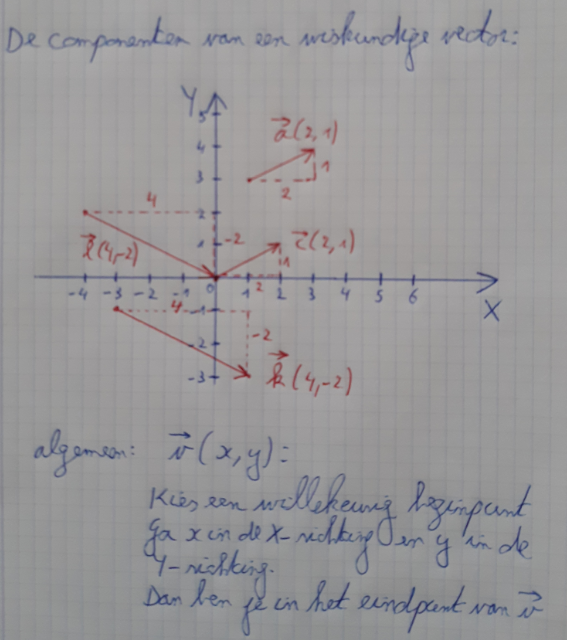 De componenten van een wiskundige vector:
Y
5
4
3
2
1
a⃗(2,1)
1
2
4
-2
l⃗(4,-2)
c⃗(2,1)
1
2
-4 -3 -2 -1 0 1 2 3 4 5 6
X
4
-1
-2
-2
-3
k⃗(4,-2)
algemeen: v⃗(x,y):
Kies een willekeurig beginpunt
Ga x in de X-richting en y in de
Y-richting.
Dan ben je in het eindpunt van v⃗